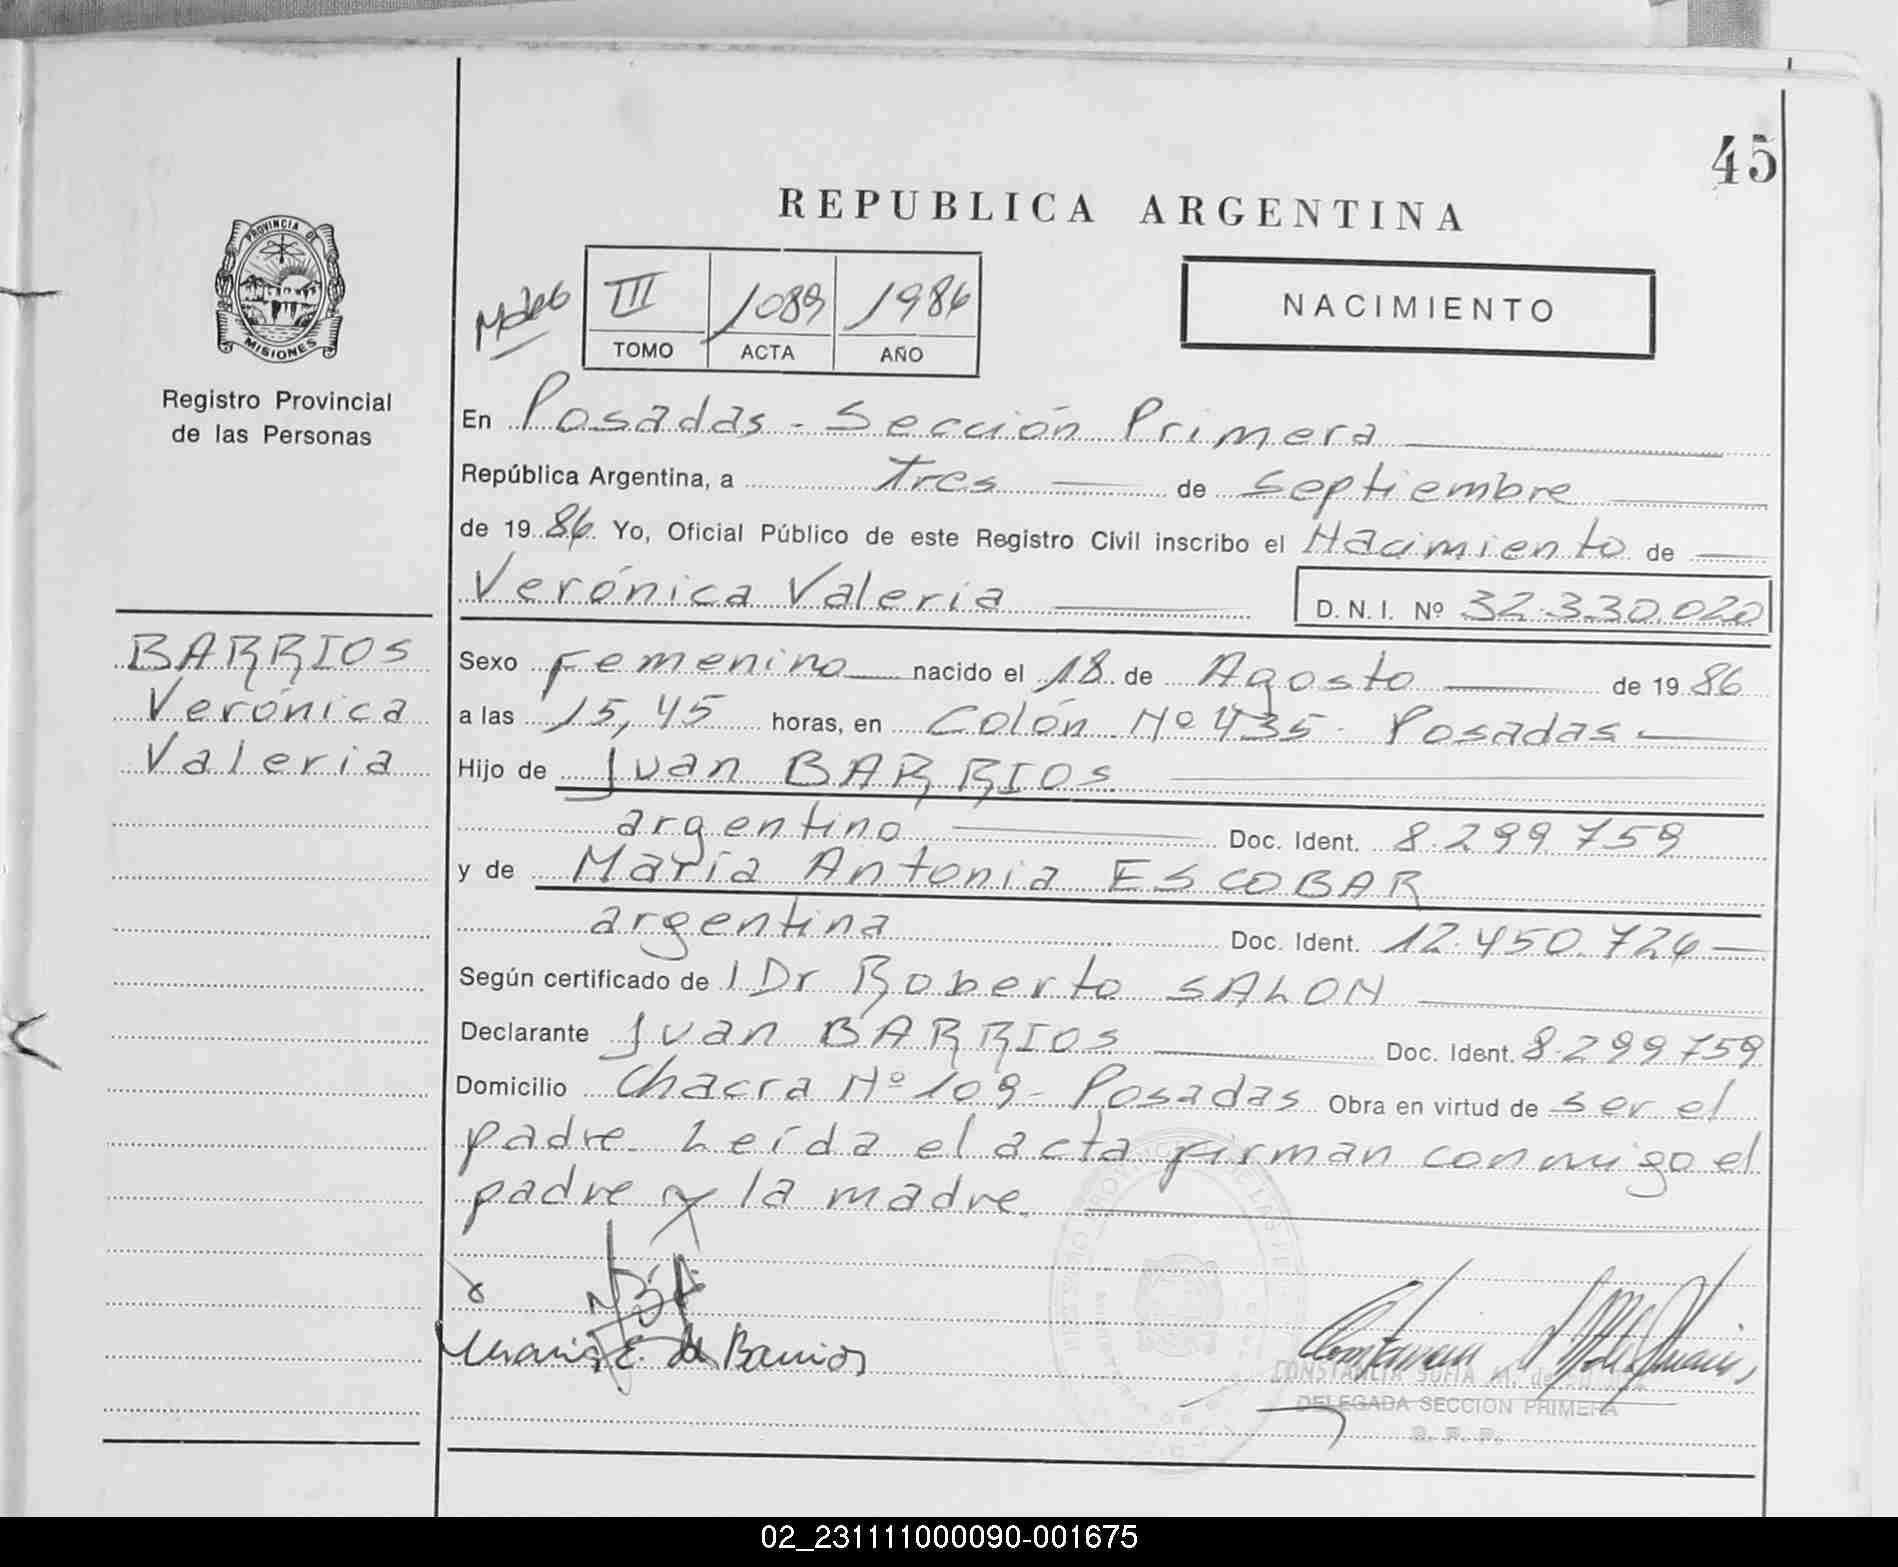 45
REPUBLICA ARGENTINA
PROVINCIA DE
MISIONES
Registro Provincial
de las Personas
III 1089 1986
TOMO ACTA AÑO
NACIMIENTO
En Posadas - Sección Primera
República Argentina, a tres de Septiembre
de 1986 Yo, Oficial Público de este Registro Civil inscribo el Nacimiento de
Verónica Valeria D.N.I. Nº 32.330.020
BARRIOS
Verónica
Valeria
Sexo Femenino nacido el 18 de Agosto de 1986
a las 15,45 horas, en Colón Nº 435 - Posadas
Hijo de Juan BARRIOS
argentino Doc. Ident. 8.299.759
y de María Antonia ESCOBAR
argentina Doc. Ident. 12.450.726
Según certificado de l Dr Roberto SALON
Declarante Juan BARRIOS Doc. Ident. 8.299.759
Domicilio Chacra Nº 109 - Posadas Obra en virtud de ser el
padre. Leída el acta firman conmigo el
padre y la madre.
Maria E. de Barrios
CONSTANCIA SOFIA M. de
DELEGADA SECCION PRIMERA
R. P. P.
02_231111000090-001675